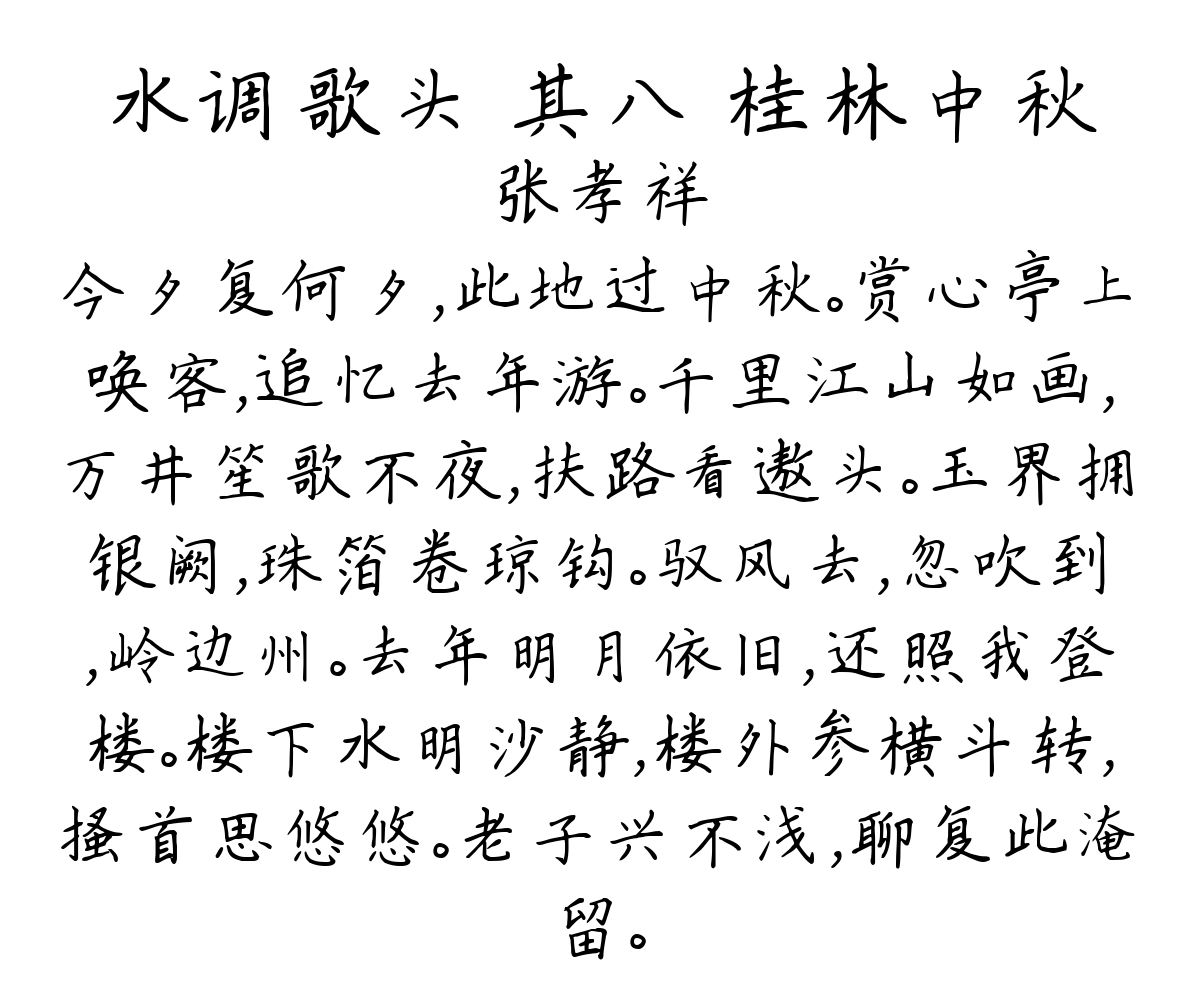 水调歌头 其八 桂林中秋
张孝祥
今夕复何夕,此地过中秋。赏心亭上
唤客,追忆去年游。千里江山如画,
万井笙歌不夜,扶路看遨头。玉界拥
银阙,珠箔卷琼钩。驭风去,忽吹到
,岭边州。去年明月依旧,还照我登
楼。楼下水明沙静,楼外参横斗转,
搔首思悠悠。老子兴不浅,聊复此淹
留。